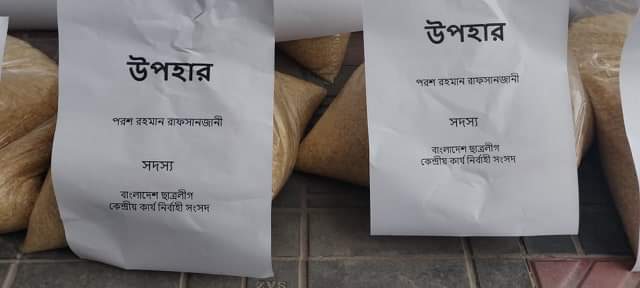 উপহার
পরশ রহমান রাফসানজানী
সদস্য
বাংলাদেশ ছাত্রলীগ
কেন্দ্রীয় কার্য নির্বাহী সংসদ
উপহার
পরশ রহমান রাফসানজানী
সদস্য
বাংলাদেশ ছাত্রলীগ
কেন্দ্রীয় কার্য নির্বাহী সংসদ